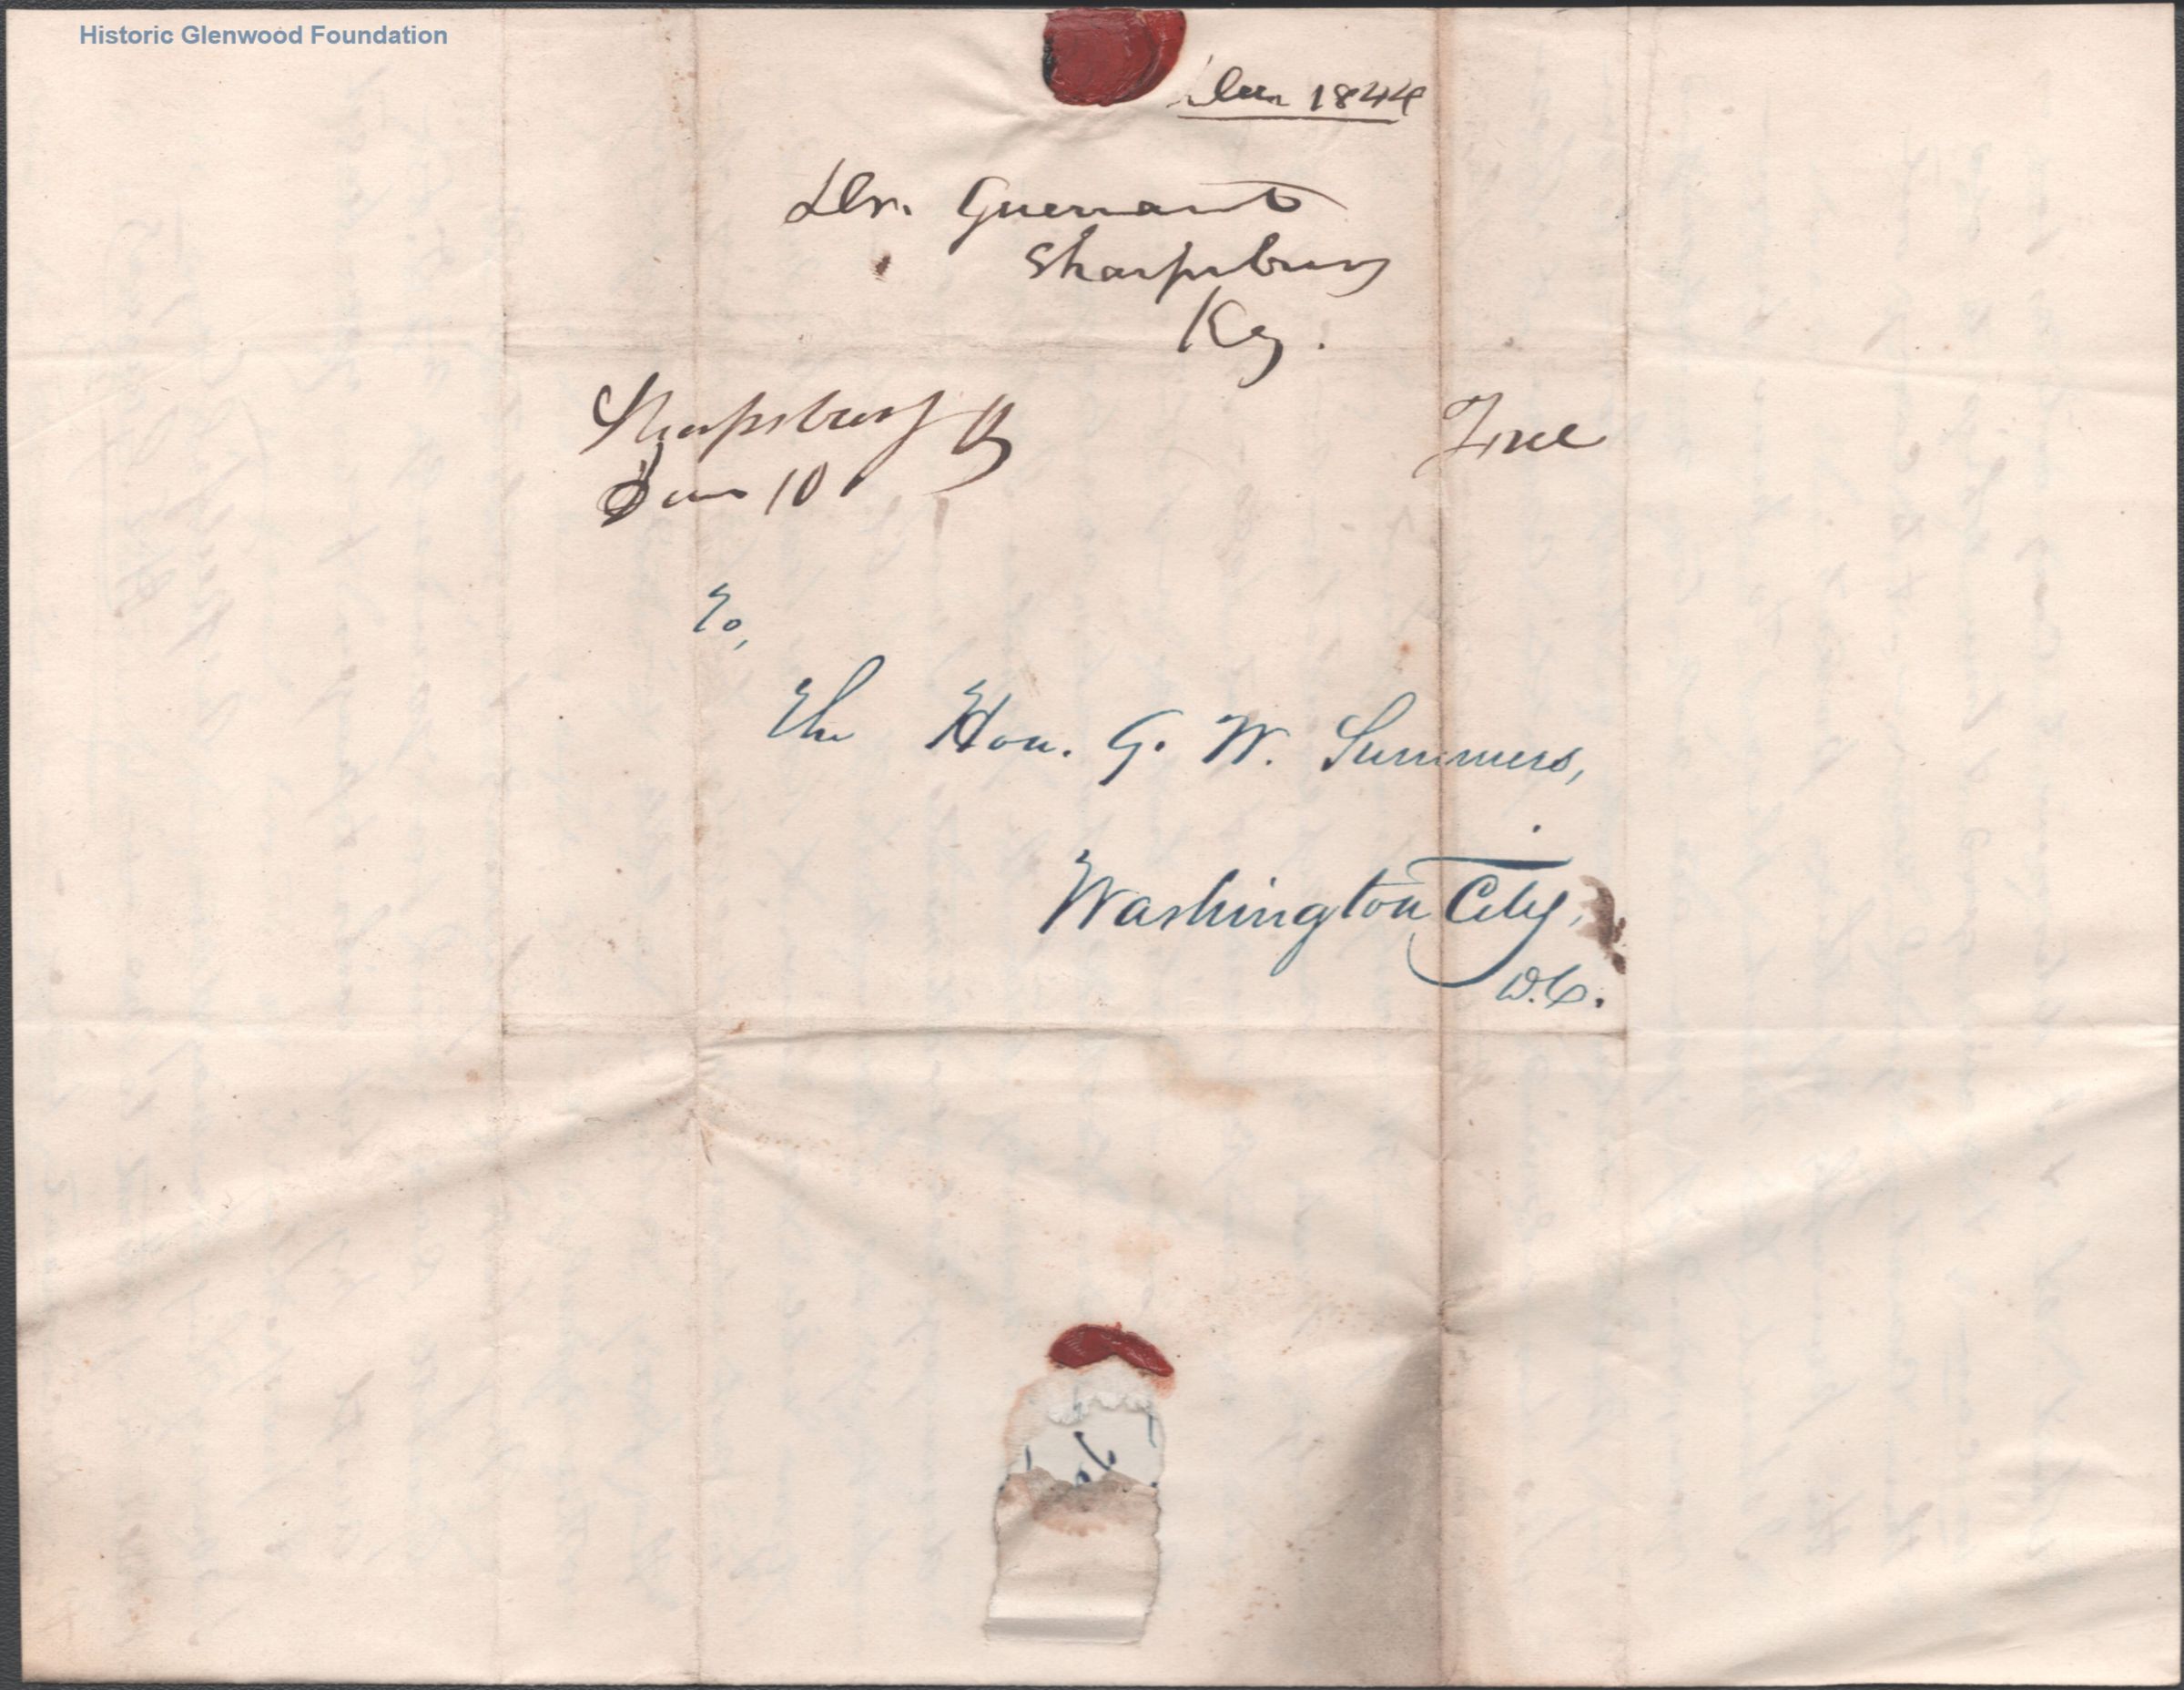 Historic Glenwood Foundation
1844
Dr. Guerrant
Sharpsburg
Ky.
Sharpsburg Ky
Free
10
To,
The Hon. G. W. Summers,
Washington City,
D.C.